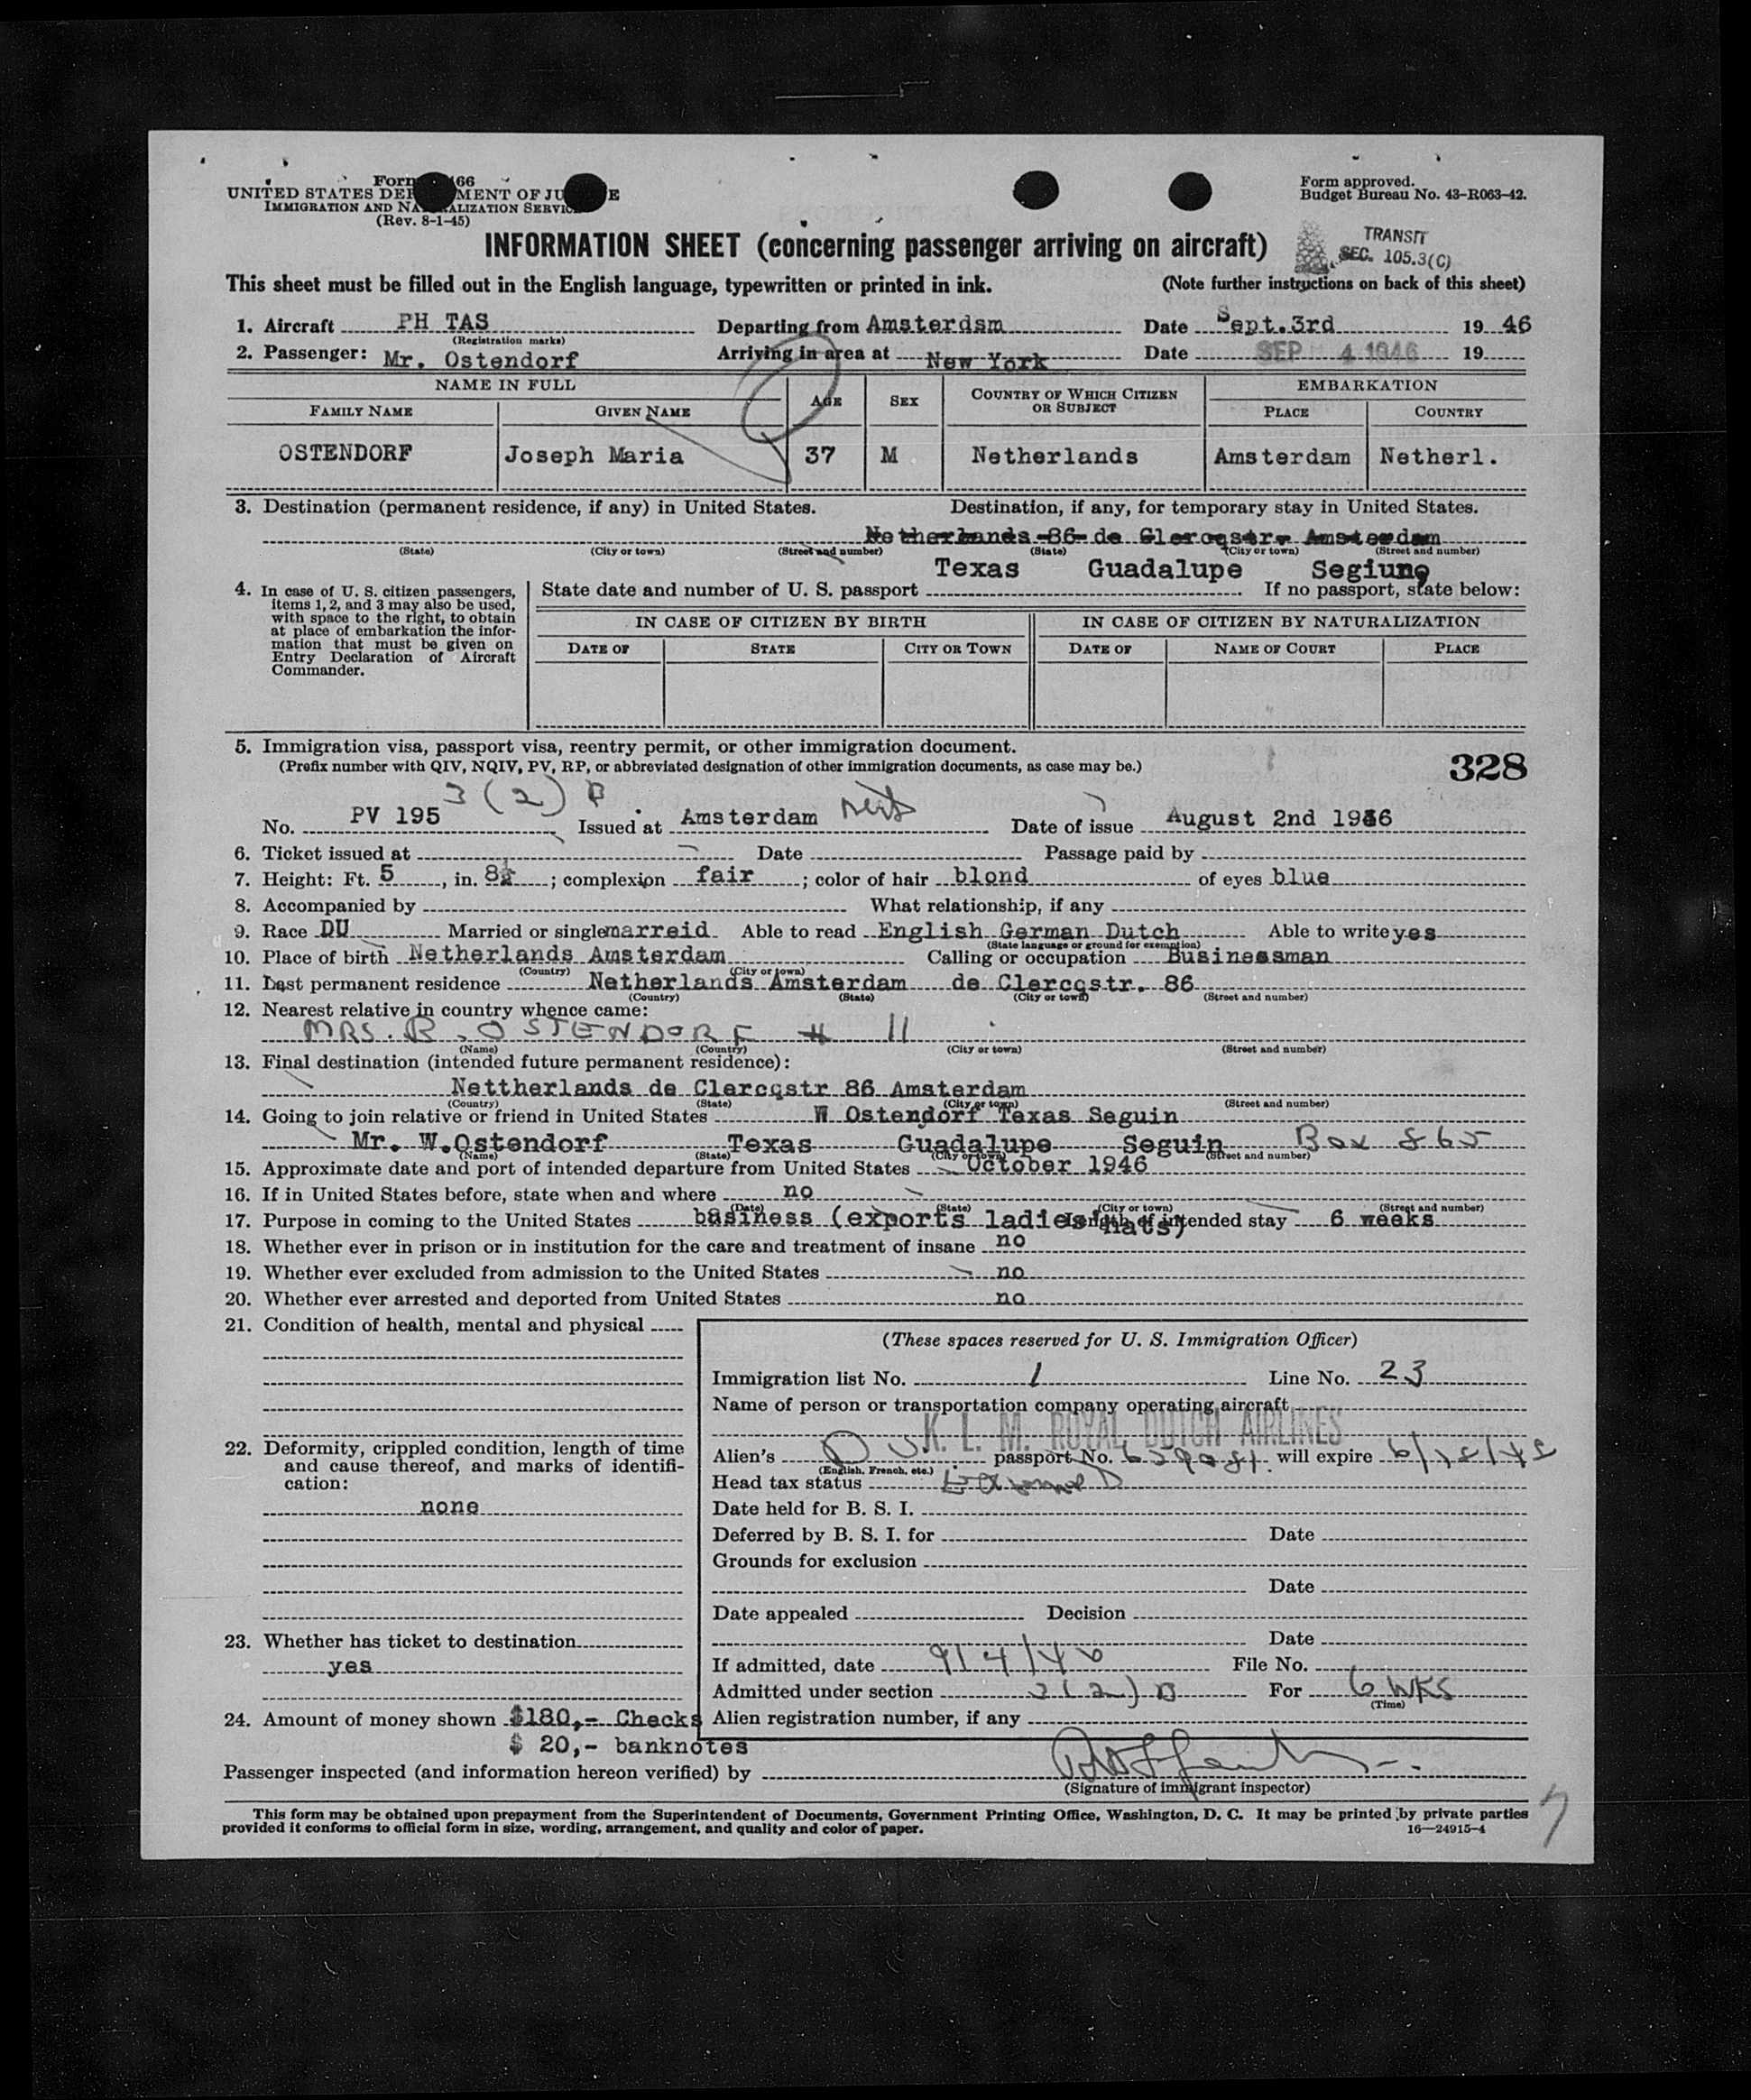 Form 66
UNITED STATES DEP MENT OF JU E
IMMIGRATION AND NA ALIZATION SERVIC
(Rev. 8-1-45)
Form approved.
Budget Bureau No. 43-R063-42.
INFORMATION SHEET (concerning passenger arriving on aircraft)
TRANSIT
SEC. 105.3(C)
This sheet must be filled out in the English language, typewritten or printed in ink. (Note further instructions on back of this sheet)
1. Aircraft PH TAS Departing from Amsterdsm Date Sept.3rd 19 46
(Registration marks)
2. Passenger: Mr. Ostendorf Arriving in area at New York Date SEP 4 1946 19
NAME IN FULL AGE SEX COUNTRY OF WHICH CITIZEN OR SUBJECT EMBARKATION
FAMILY NAME GIVEN NAME PLACE COUNTRY
OSTENDORF Joseph Maria 37 M Netherlands Amsterdam Netherl.
3. Destination (permanent residence, if any) in United States. Destination, if any, for temporary stay in United States.
Netherlands-86-de Clercqstr. Amsterdam
(State) (City or town) (Street and number) (State) (City or town) (Street and number)
Texas Guadalupe Segiune
4. In case of U. S. citizen passengers, items 1, 2, and 3 may also be used, with space to the right, to obtain at place of embarkation the information that must be given on Entry Declaration of Aircraft Commander.
State date and number of U. S. passport If no passport, state below:
IN CASE OF CITIZEN BY BIRTH IN CASE OF CITIZEN BY NATURALIZATION
DATE OF STATE CITY OR TOWN DATE OF NAME OF COURT PLACE
5. Immigration visa, passport visa, reentry permit, or other immigration document.
(Prefix number with QIV, NQIV, PV, RP, or abbreviated designation of other immigration documents, as case may be.)
328
3 (2) B
No. PV 195 Issued at Amsterdam Date of issue August 2nd 1946
6. Ticket issued at Date Passage paid by
7. Height: Ft. 5, in. 8½; complexion fair; color of hair blond of eyes blue
8. Accompanied by What relationship, if any
9. Race DU Married or single marreid Able to read English German Dutch Able to write yes
(State language or ground for exemption)
10. Place of birth Netherlands Amsterdam Calling or occupation Businessman
(Country) (City or town)
11. Last permanent residence Netherlands Amsterdam de Clercqstr. 86
(Country) (State) (City or town) (Street and number)
12. Nearest relative in country whence came:
MRS. B. OSTENDORF # 11
(Name) (Country) (City or town) (Street and number)
13. Final destination (intended future permanent residence):
Nettherlands de Clercqstr 86 Amsterdam
(Country) (State) (City or town) (Street and number)
14. Going to join relative or friend in United States W Ostendorf Texas Seguin
Mr. W.Ostendorf Texas Guadalupe Seguin Box 865
(Name) (State) (City or town) (Street and number)
15. Approximate date and port of intended departure from United States October 1946
16. If in United States before, state when and where no
(Date) (State) (City or town) (Street and number)
17. Purpose in coming to the United States business (exports ladies' hats) Length of intended stay 6 weeks
18. Whether ever in prison or in institution for the care and treatment of insane no
19. Whether ever excluded from admission to the United States no
20. Whether ever arrested and deported from United States no
21. Condition of health, mental and physical
(These spaces reserved for U. S. Immigration Officer)
Immigration list No. 1 Line No. 23
Name of person or transportation company operating aircraft
K. L. M. ROYAL DUTCH AIRLINES
22. Deformity, crippled condition, length of time and cause thereof, and marks of identification:
none
Alien's Du passport No. will expire
(English, French, etc.)
Head tax status
Date held for B. S. I.
Deferred by B. S. I. for Date
Grounds for exclusion
Date
Date appealed Decision
Date
23. Whether has ticket to destination
yes
If admitted, date 9/4/46 File No.
Admitted under section 3(2)B For 6 WKS
(Time)
24. Amount of money shown $180,- Checks
$ 20,- banknotes
Alien registration number, if any
Passenger inspected (and information hereon verified) by
(Signature of immigrant inspector)
This form may be obtained upon prepayment from the Superintendent of Documents, Government Printing Office, Washington, D. C. It may be printed by private parties
provided it conforms to official form in size, wording, arrangement, and quality and color of paper. 16—24915-4